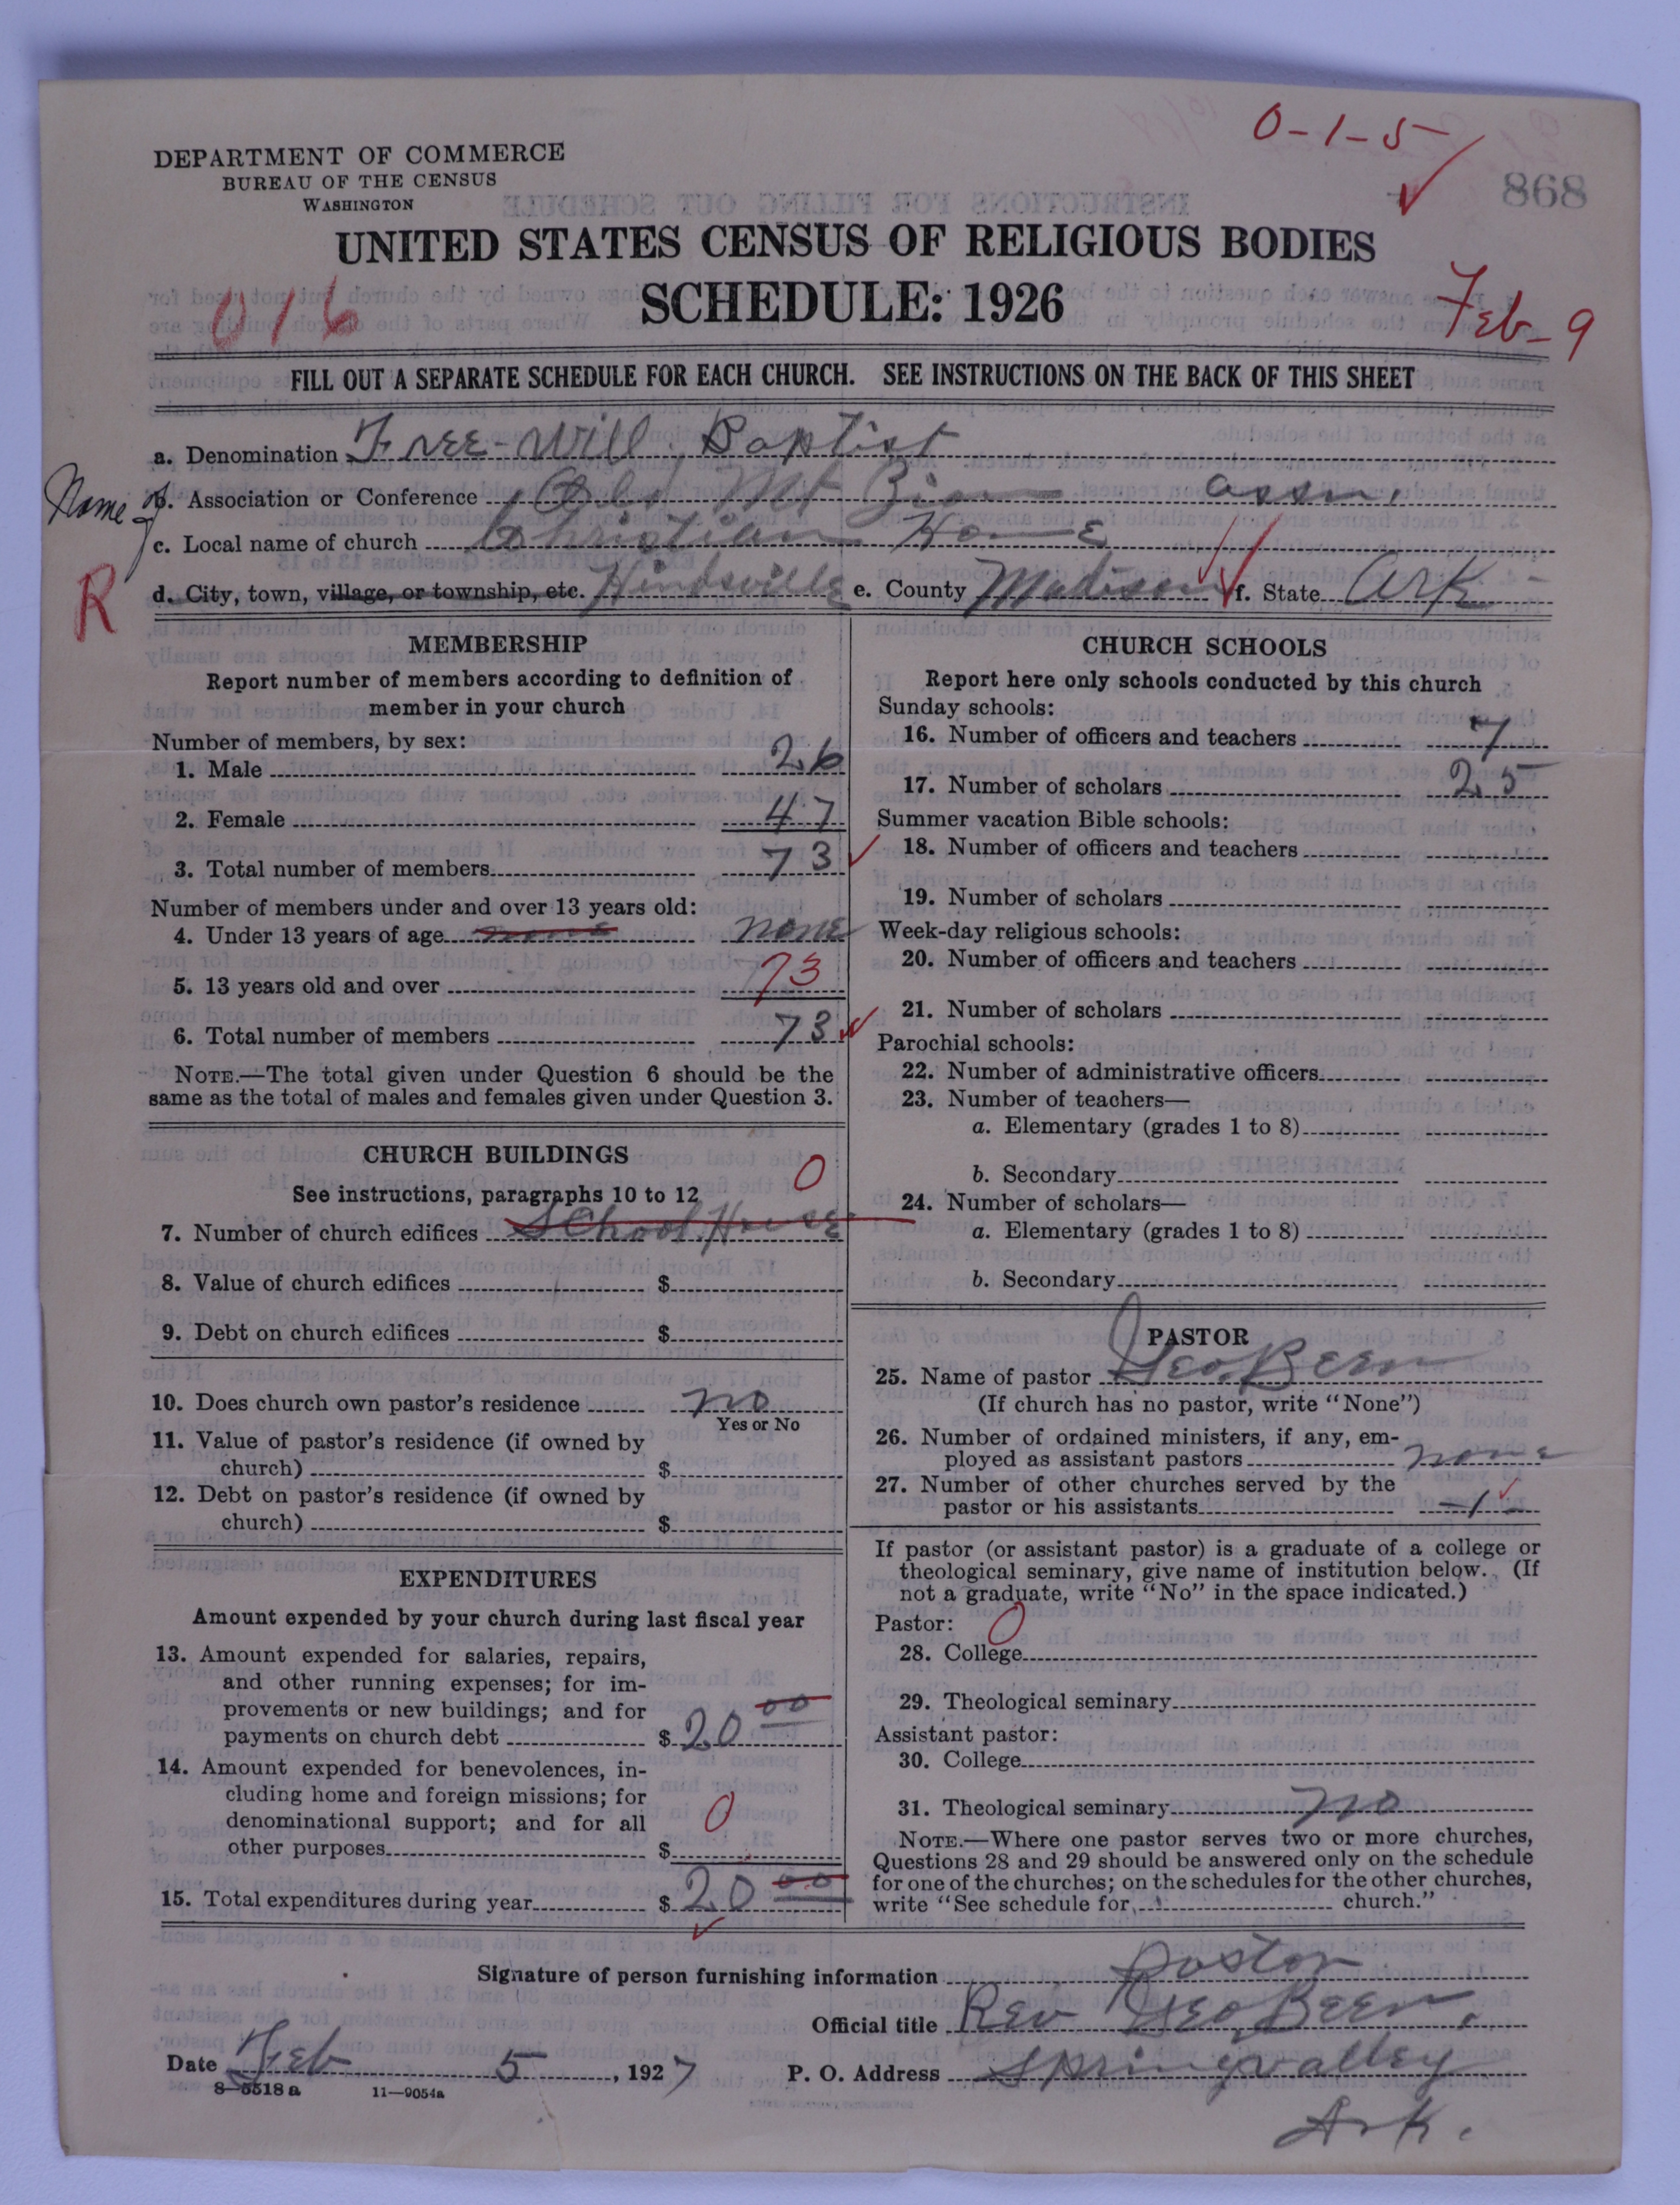 0-1-5
868
DEPARTMENT OF COMMERCE
BUREAU OF THE CENSUS
WASHINGTON
UNITED STATES CENSUS OF RELIGIOUS BODIES
SCHEDULE: 1926
016
Feb-9
FILL OUT A SEPARATE SCHEDULE FOR EACH CHURCH. SEE INSTRUCTIONS ON THE BACK OF THIS SHEET
a. Denomination Free-Will Baptist
Name of b. Association or Conference Old Mt Zion assn.
c. Local name of church Christian Home
R
d. City, town, village, or township, etc. Hindsville e. County Madison f. State Ark
MEMBERSHIP
Report number of members according to definition of
member in your church
Number of members, by sex:
1. Male 26
2. Female 47
3. Total number of members 73
Number of members under and over 13 years old:
4. Under 13 years of age none none
5. 13 years old and over 73
6. Total number of members 73
NOTE.—The total given under Question 6 should be the
same as the total of males and females given under Question 3.
CHURCH BUILDINGS
See instructions, paragraphs 10 to 12 0
7. Number of church edifices School House
8. Value of church edifices $
9. Debt on church edifices $
10. Does church own pastor's residence no
Yes or No
11. Value of pastor's residence (if owned by
church) $
12. Debt on pastor's residence (if owned by
church) $
EXPENDITURES
Amount expended by your church during last fiscal year
13. Amount expended for salaries, repairs,
and other running expenses; for im-
provements or new buildings; and for
payments on church debt $ 20 00
14. Amount expended for benevolences, in-
cluding home and foreign missions; for
denominational support; and for all
other purposes $ 0
15. Total expenditures during year $ 20 00
CHURCH SCHOOLS
Report here only schools conducted by this church
Sunday schools:
16. Number of officers and teachers 7
17. Number of scholars 25
Summer vacation Bible schools:
18. Number of officers and teachers
19. Number of scholars
Week-day religious schools:
20. Number of officers and teachers
21. Number of scholars
Parochial schools:
22. Number of administrative officers
23. Number of teachers—
a. Elementary (grades 1 to 8)
b. Secondary
24. Number of scholars—
a. Elementary (grades 1 to 8)
b. Secondary
PASTOR
25. Name of pastor Geo. Been
(If church has no pastor, write "None")
26. Number of ordained ministers, if any, em-
ployed as assistant pastors none
27. Number of other churches served by the
pastor or his assistants -1-
If pastor (or assistant pastor) is a graduate of a college or
theological seminary, give name of institution below. (If
not a graduate, write "No" in the space indicated.)
Pastor: 0
28. College
29. Theological seminary
Assistant pastor:
30. College
31. Theological seminary no
NOTE.—Where one pastor serves two or more churches,
Questions 28 and 29 should be answered only on the schedule
for one of the churches; on the schedules for the other churches,
write "See schedule for church."
Signature of person furnishing information Pastor
Official title Rev Geo Been.
Date Feb 5, 1927 P. O. Address Springvalley
Ark.
8-5518a 11—9054a